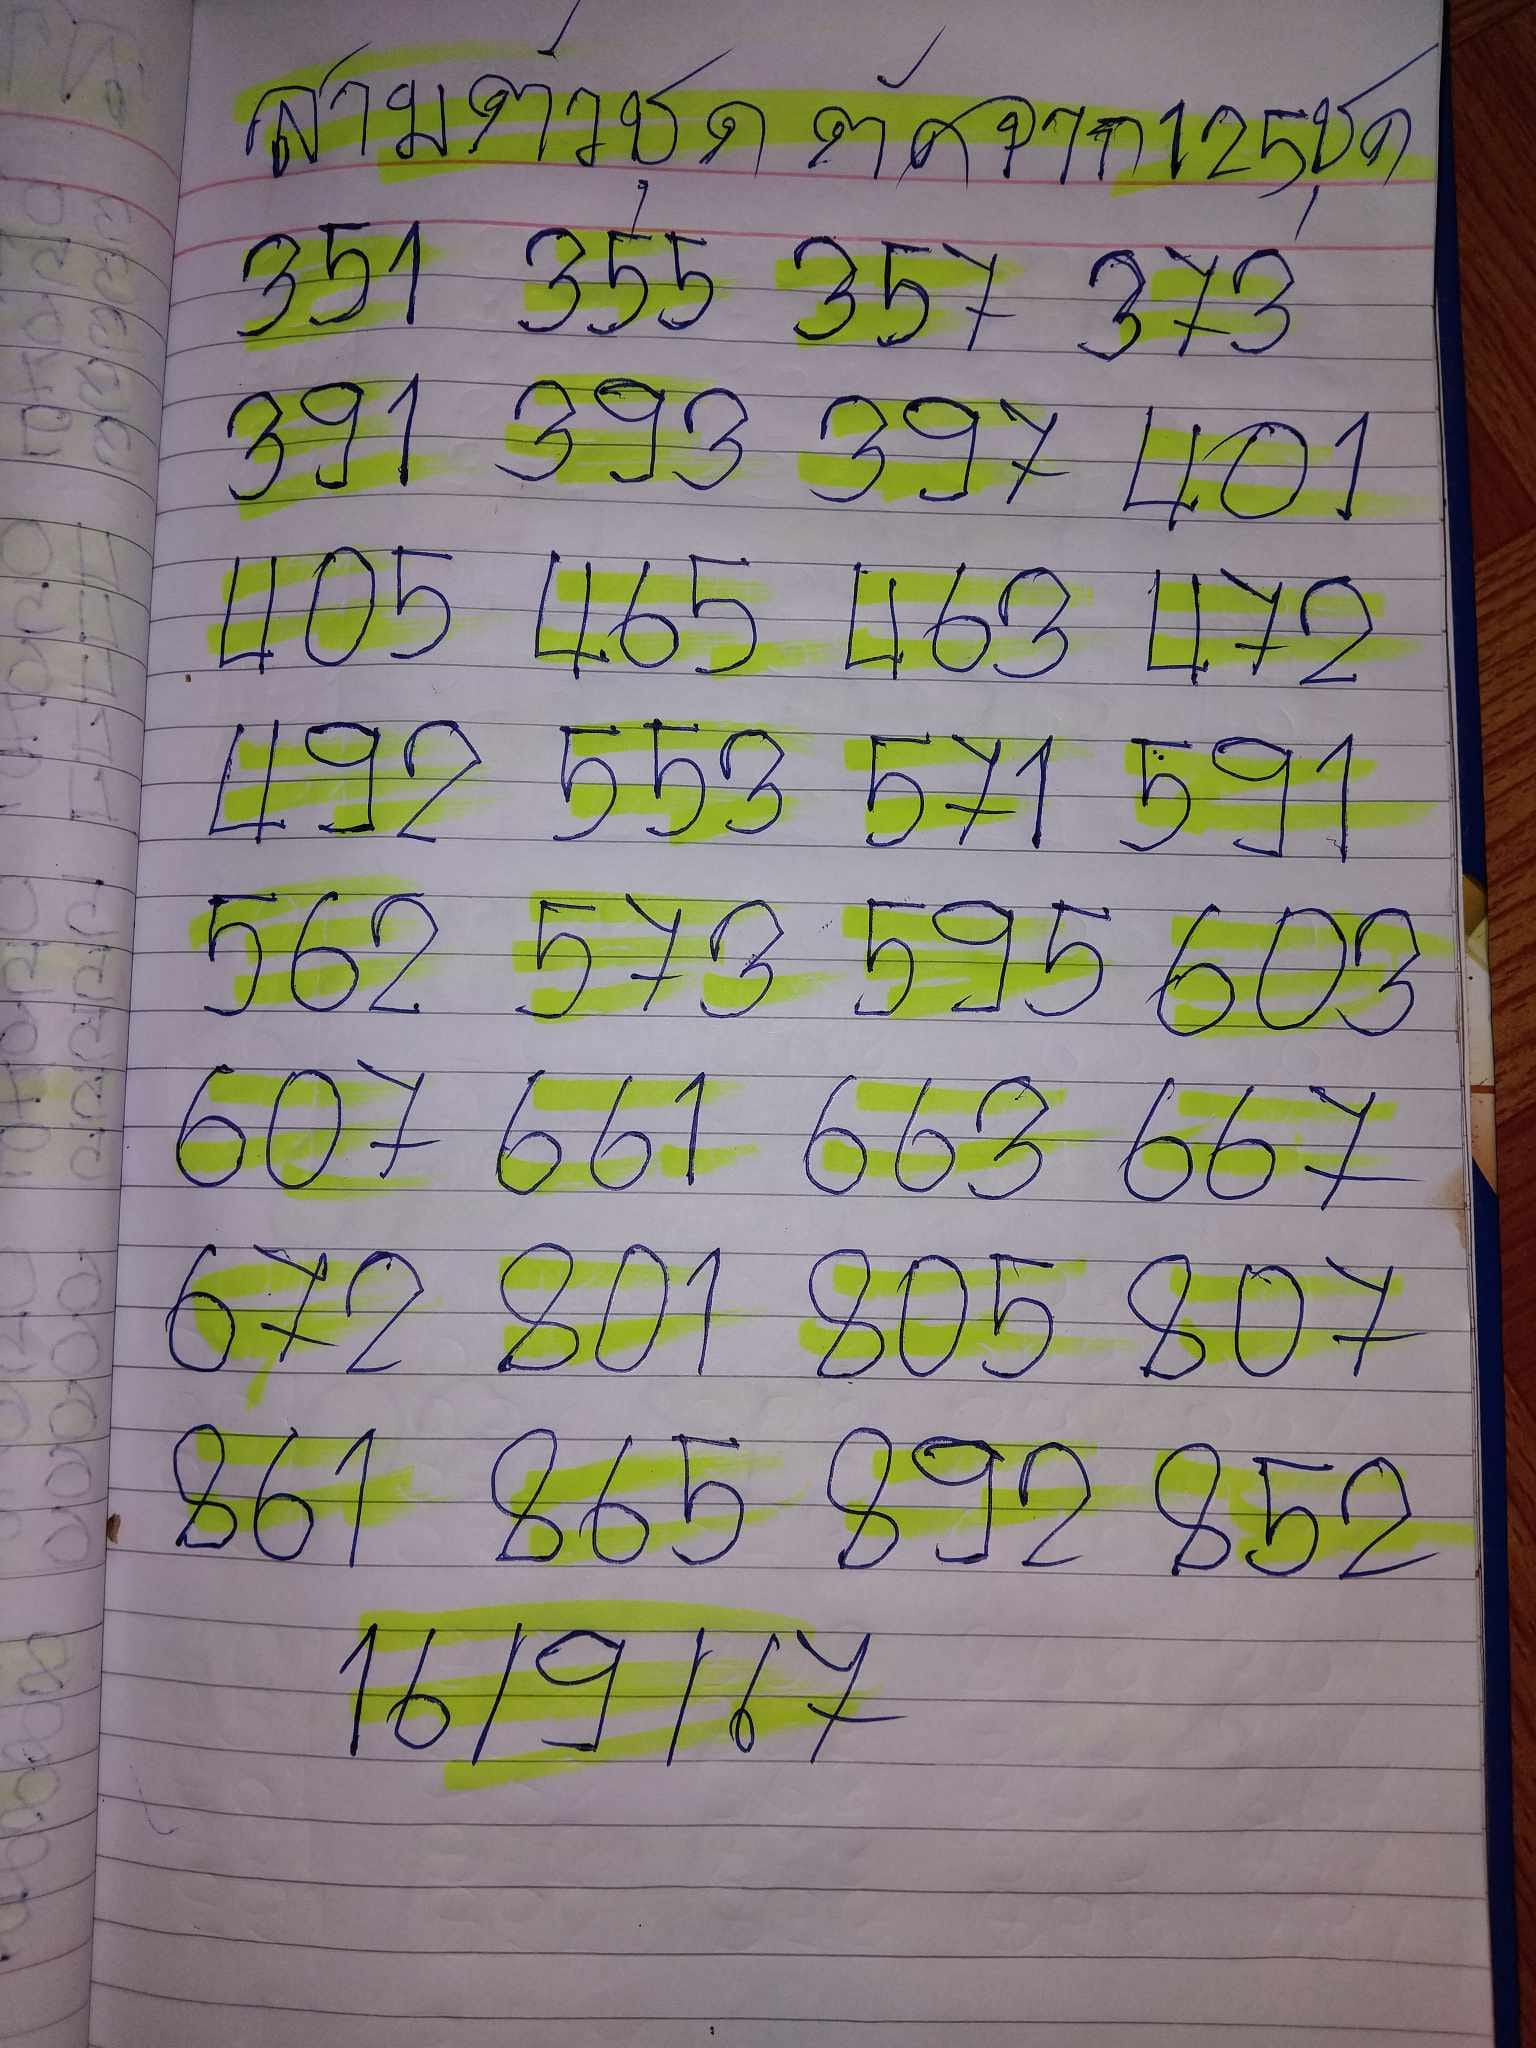 สามตัวชุด ตัดจาก125ชุด
351 355 357 373
391 393 397 401
405 465 463 472
492 553 571 591
562 573 595 603
607 661 663 667
672 801 805 807
861 865 892 852
16/9/67